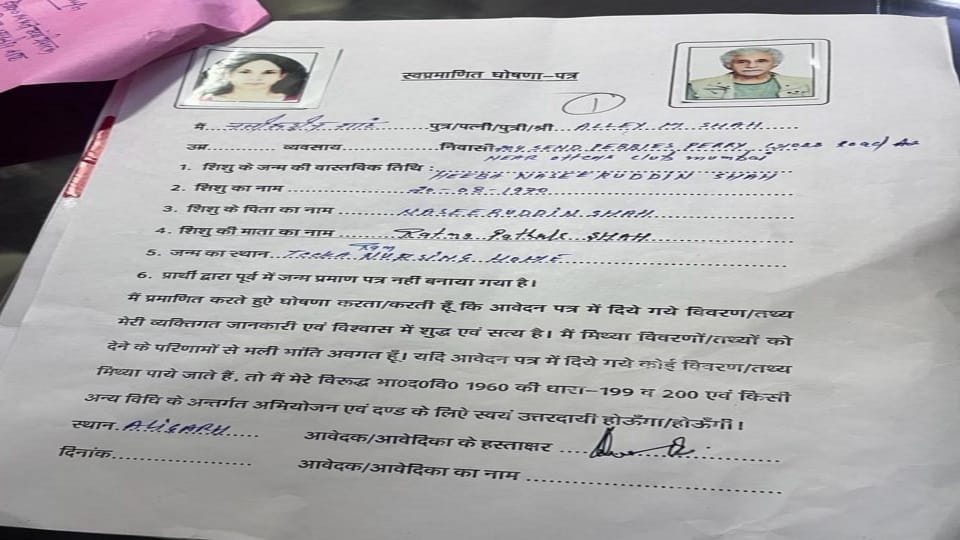 स्वप्रमाणित घोषणा-पत्र
1
मैं नसीरुद्दीन शाह पुत्र/पत्नी/पुत्री/श्री ALLEY M SHAH
उम्र व्यवसाय निवासी PEBBLES PERRY ROAD
NEAR club mumbai
1. शिशु के जन्म की वास्तविक तिथि : HEEBA NASEERUDDIN SHAH
2. शिशु का नाम 20-08-1970
3. शिशु के पिता का नाम NASEERUDDIN SHAH
4. शिशु की माता का नाम Ratna Pathak SHAH
5. जन्म का स्थान Ram NURSING HOME
6. प्रार्थी द्वारा पूर्व में जन्म प्रमाण पत्र नहीं बनाया गया है।
मैं प्रमाणित करते हुऐ घोषणा करता/करती हूँ कि आवेदन पत्र में दिये गये विवरण/तथ्य
मेरी व्यक्तिगत जानकारी एवं विश्वास में शुद्ध एवं सत्य है। मैं मिथ्या विवरणों/तथ्यों को
देने के परिणामों से भली भांति अवगत हूँ। यदि आवेदन पत्र में दिये गये कोई विवरण/तथ्य
मिथ्या पाये जाते हैं, तो मैं मेरे विरूद्ध भा०द०वि० 1960 की धारा-199 व 200 एवं किसी
अन्य विधि के अन्तर्गत अभियोजन एवं दण्ड के लिऐ स्वयं उत्तरदायी होऊँगा/होऊँगी।
स्थान ALIGARH आवेदक/आवेदिका के हस्ताक्षर
दिनांक आवेदक/आवेदिका का नाम